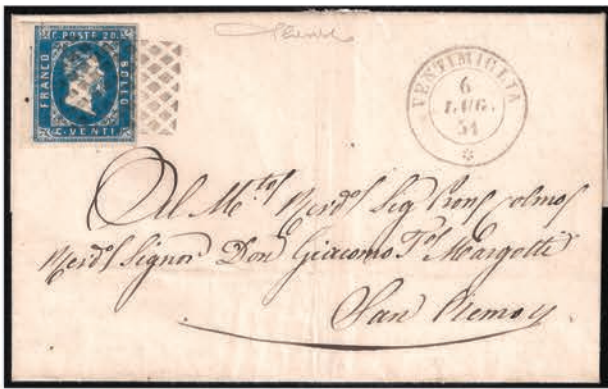 C. POSTE 20.
FRANCO
BOLLO
C. VENTI
VENTIMIGLIA
6
LUG.
51
Al M.tos Revdos Sig Prons Colmos
Revdos Signor Don Giacomo T.os Margotti
San Remo